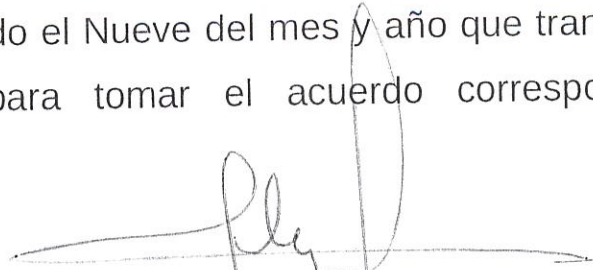 do el Nueve del mes y año que tran
para tomar el acuerdo correspo